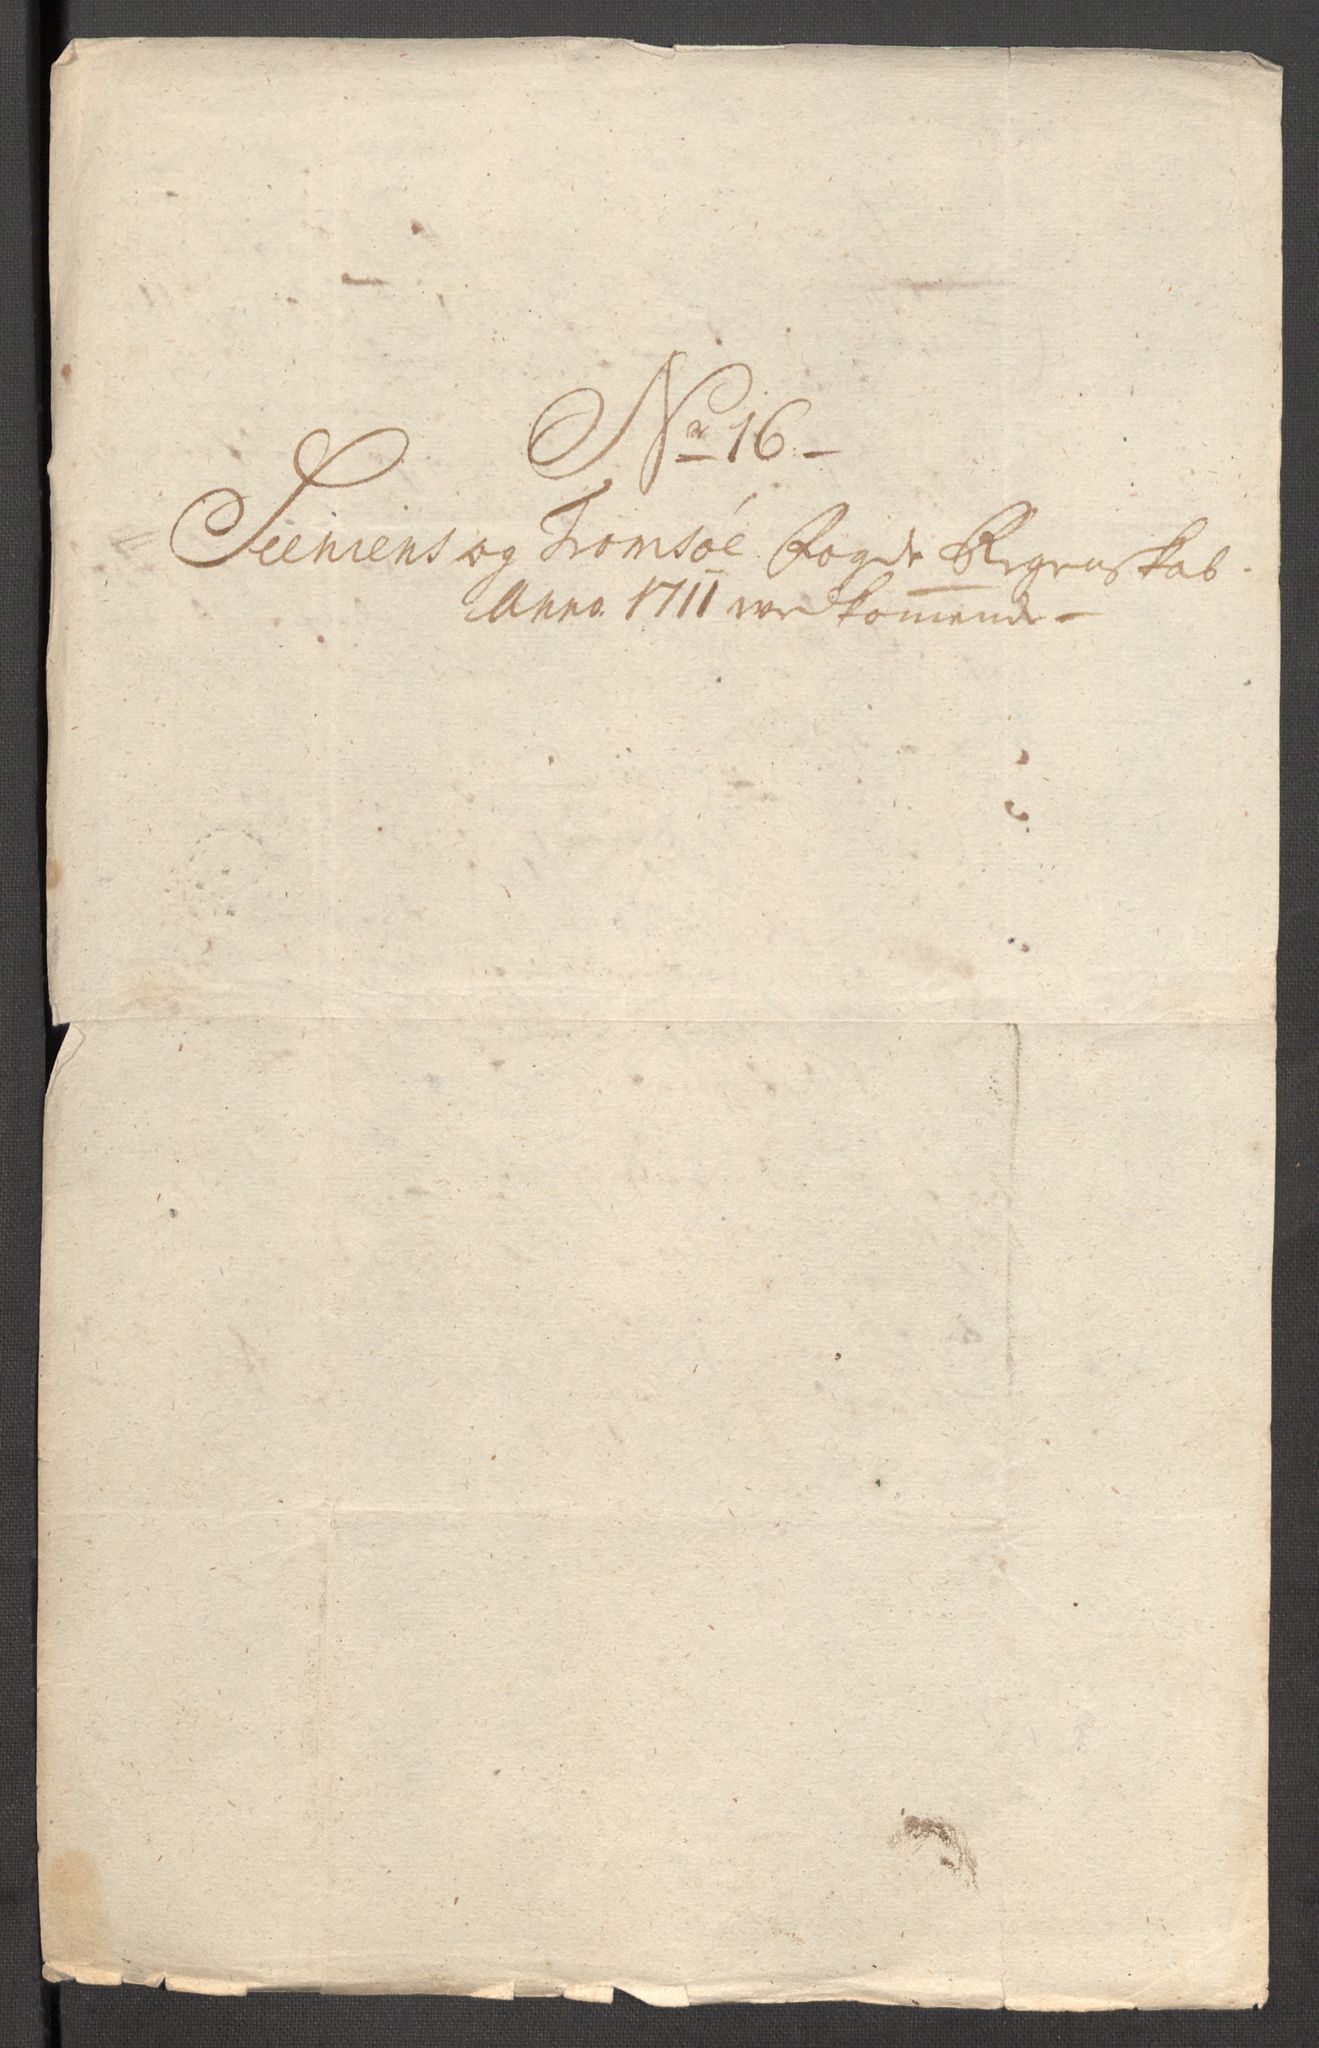 No 16.
Seeniens og Tromsøe Fogde Regenskab
Anno 1711 vedkom̅ende